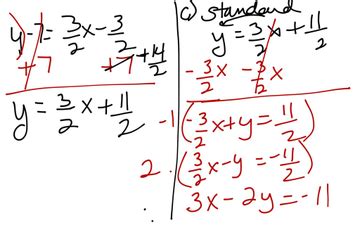 y - 7 = 3/2 x - 3/2
+7 +7 + 14/2
y = 3/2 x + 11/2
c) standard
y = 3/2 x + 11/2
- 3/2 x - 3/2 x
-1 (- 3/2 x + y = 11/2)
2 · (3/2 x - y = -11/2)
3x - 2y = -11